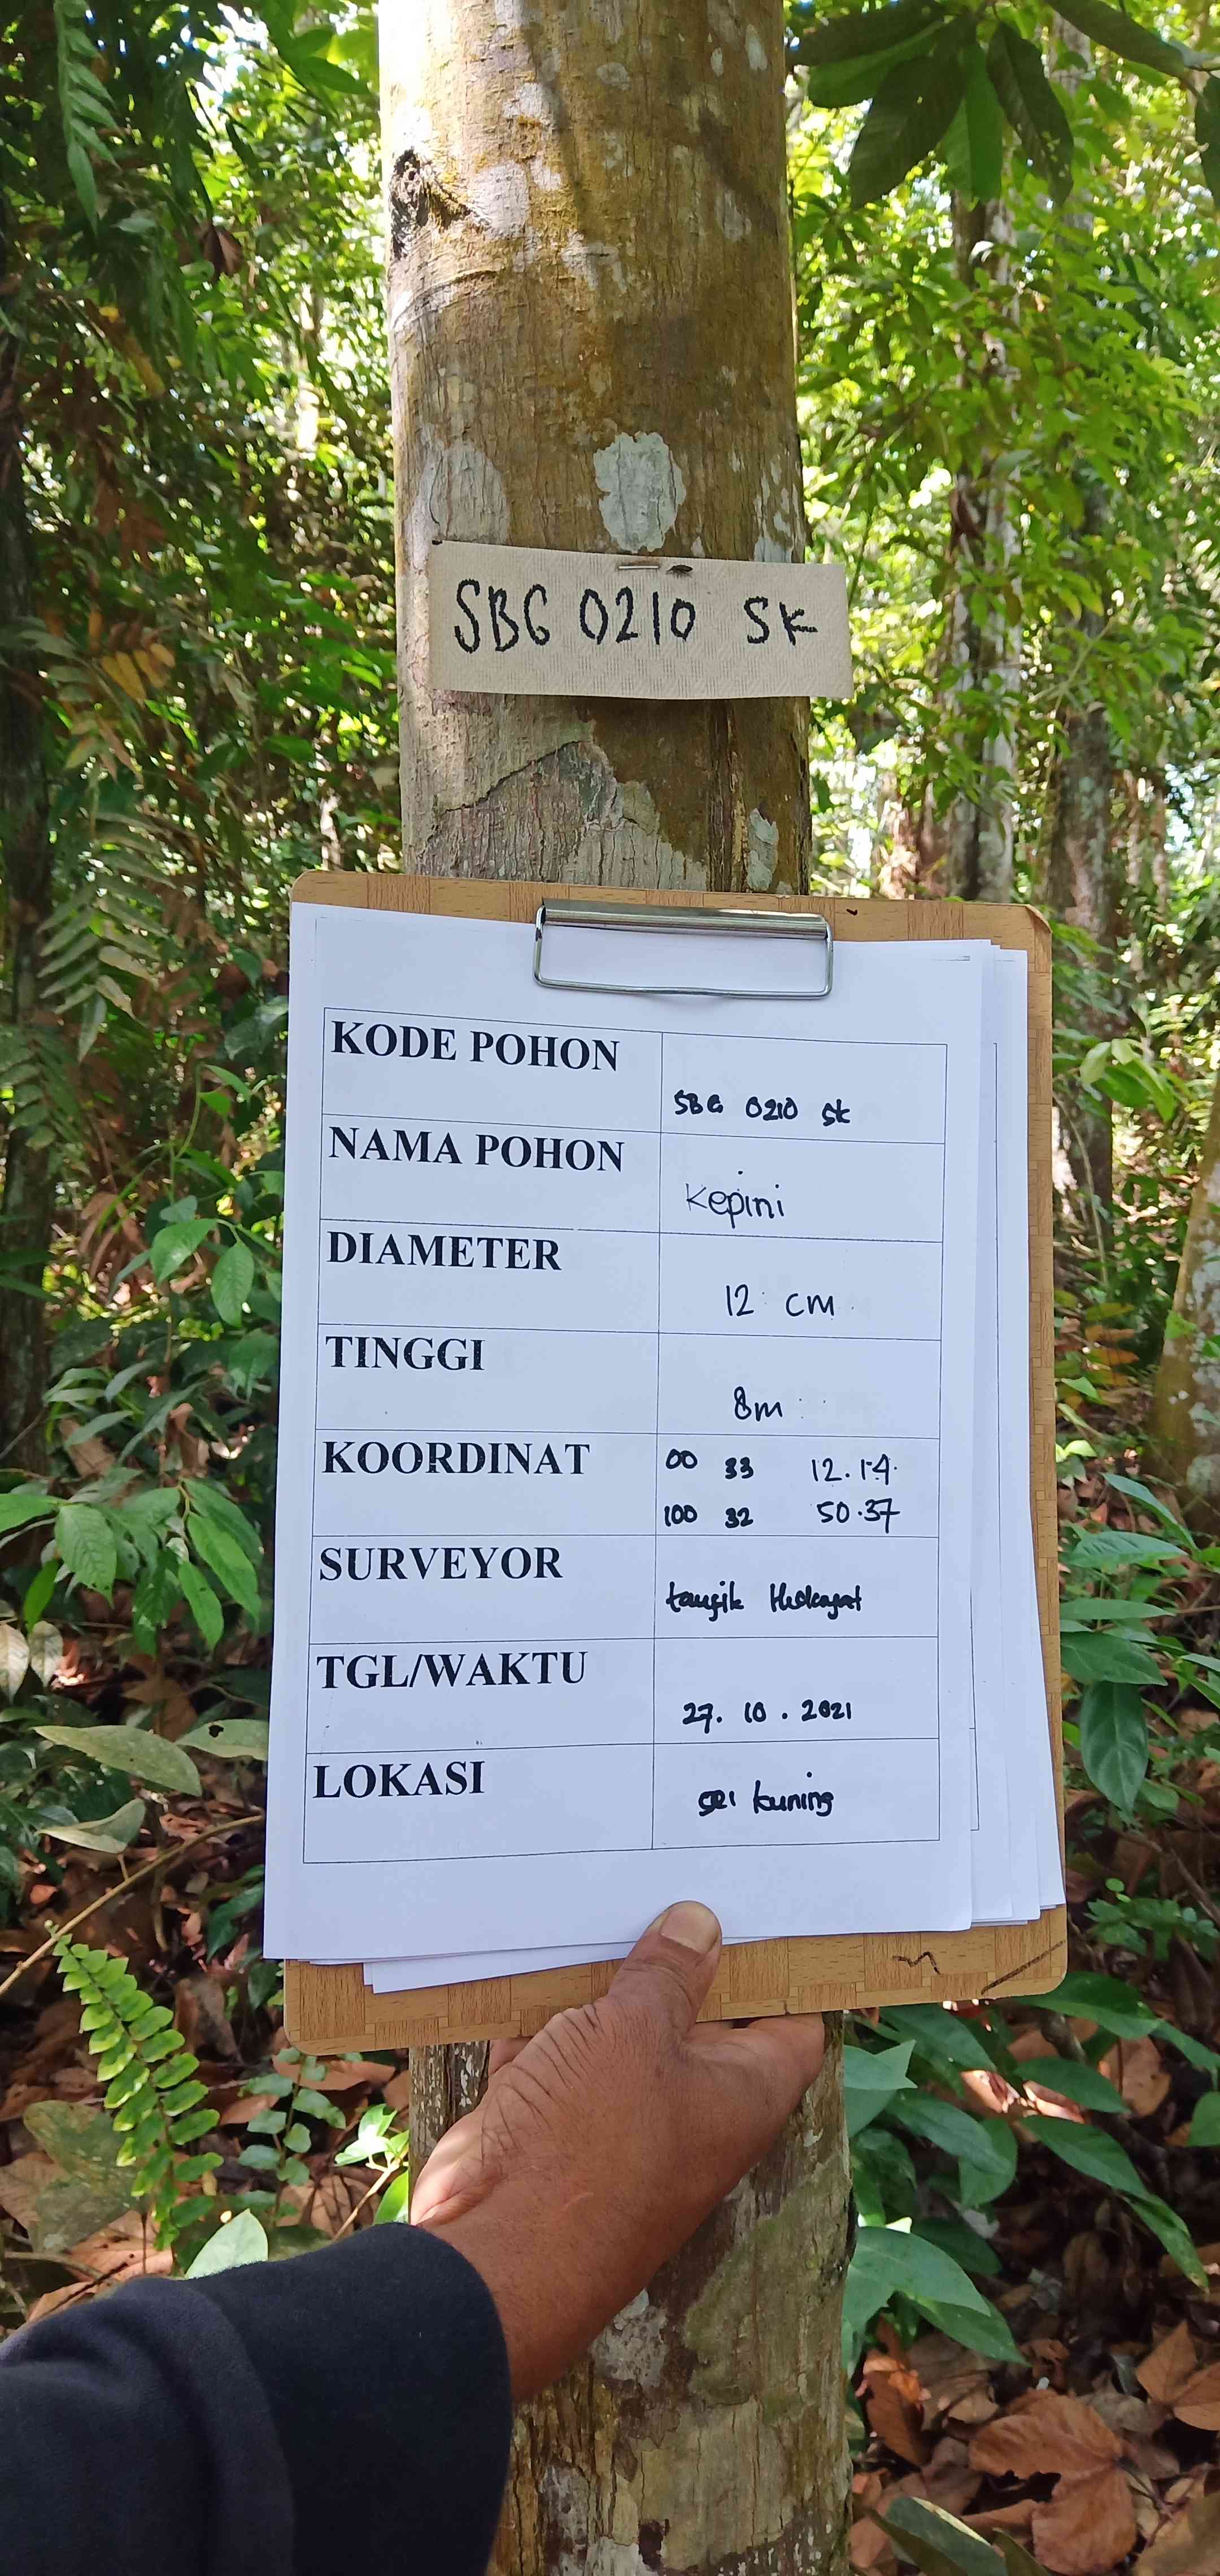 SBG 0210 SK
KODE POHON
SBG 0210 SK
NAMA POHON
Kepini
DIAMETER
12 cm
TINGGI
8m
KOORDINAT
00 33 12.14
100 32 50.37
SURVEYOR
taufik Hidayat
TGL/WAKTU
27. 10. 2021
LOKASI
kuning